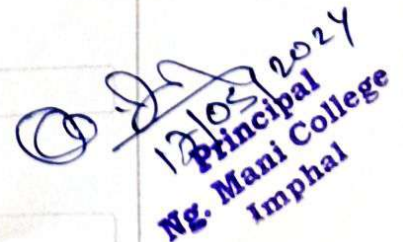 17/05/2024
Principal
Ng. Mani College
Imphal